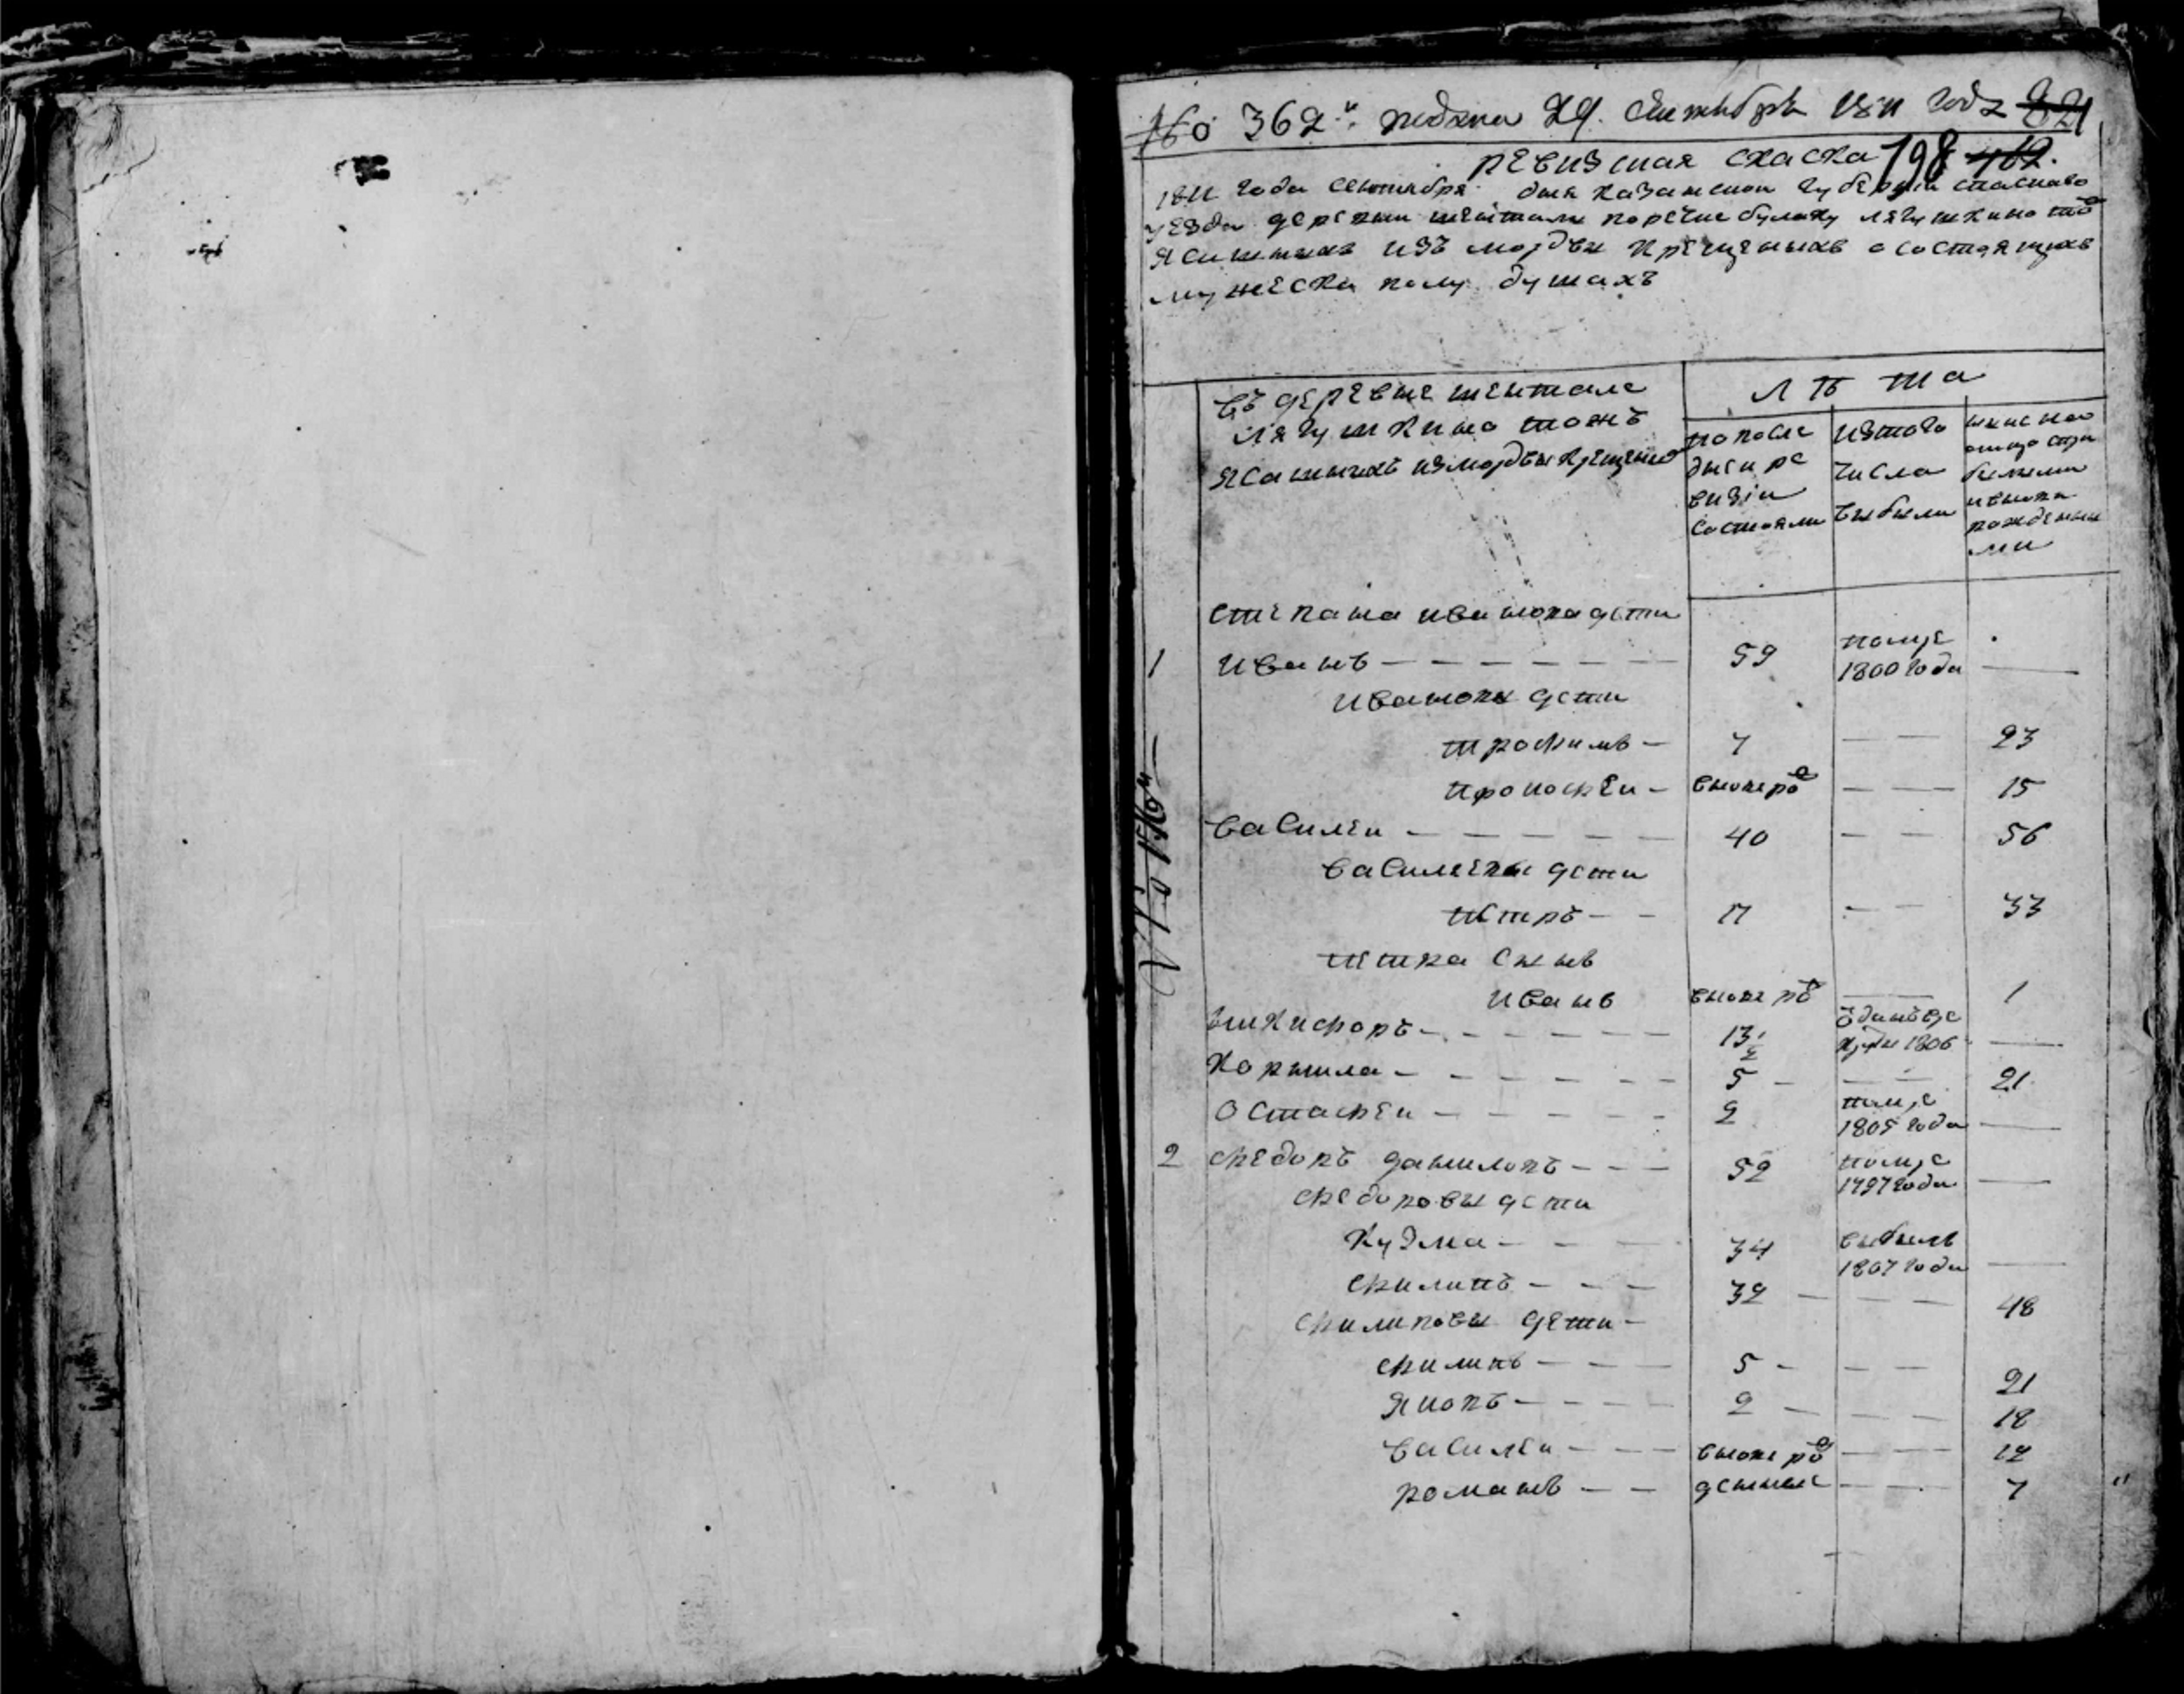 № 362й. подана 29. Сентября 1811 года 821
ревизская скаска 198 462.
1811 года сентября дня казанской губернии спаскаго
уезда деревни шентали поречке булаку лягушкино тож
ясашных изъ мордвы крещеныхъ о состоящихъ
мужеска полу душахъ
въ деревне шентале
лягушкино тожъ
ясашныхъ измордвы крещеных
Лѣта
по после
дней ре
визiи
состояли
изтого
числа
выбыли
ныне на
лицо
и вновь
рожденны
ми
степана иванова дети
1 Иванъ 59 помре 1800 года
Ивановы дети
трофимъ 7 23
Ерофеи вновь ро 15
Василеи 40 56
Василевы дети
петръ 17 33
петра сынъ
Иванъ вновь ро 1
Никифоръ 13 1/2 отданъ в ре круты 1806
Корнила 5 21
Остафеи 2 помре 1805 года
2 Федоръ даниловъ 52 помре 1797 года
Федоровы дети
Кузма 34 выбылъ 1807 года
Филипъ 32 48
Филиповы дети
Филипъ 5 21
Яковъ 2 18
Василеи вновь ро 12
романъ денные 7